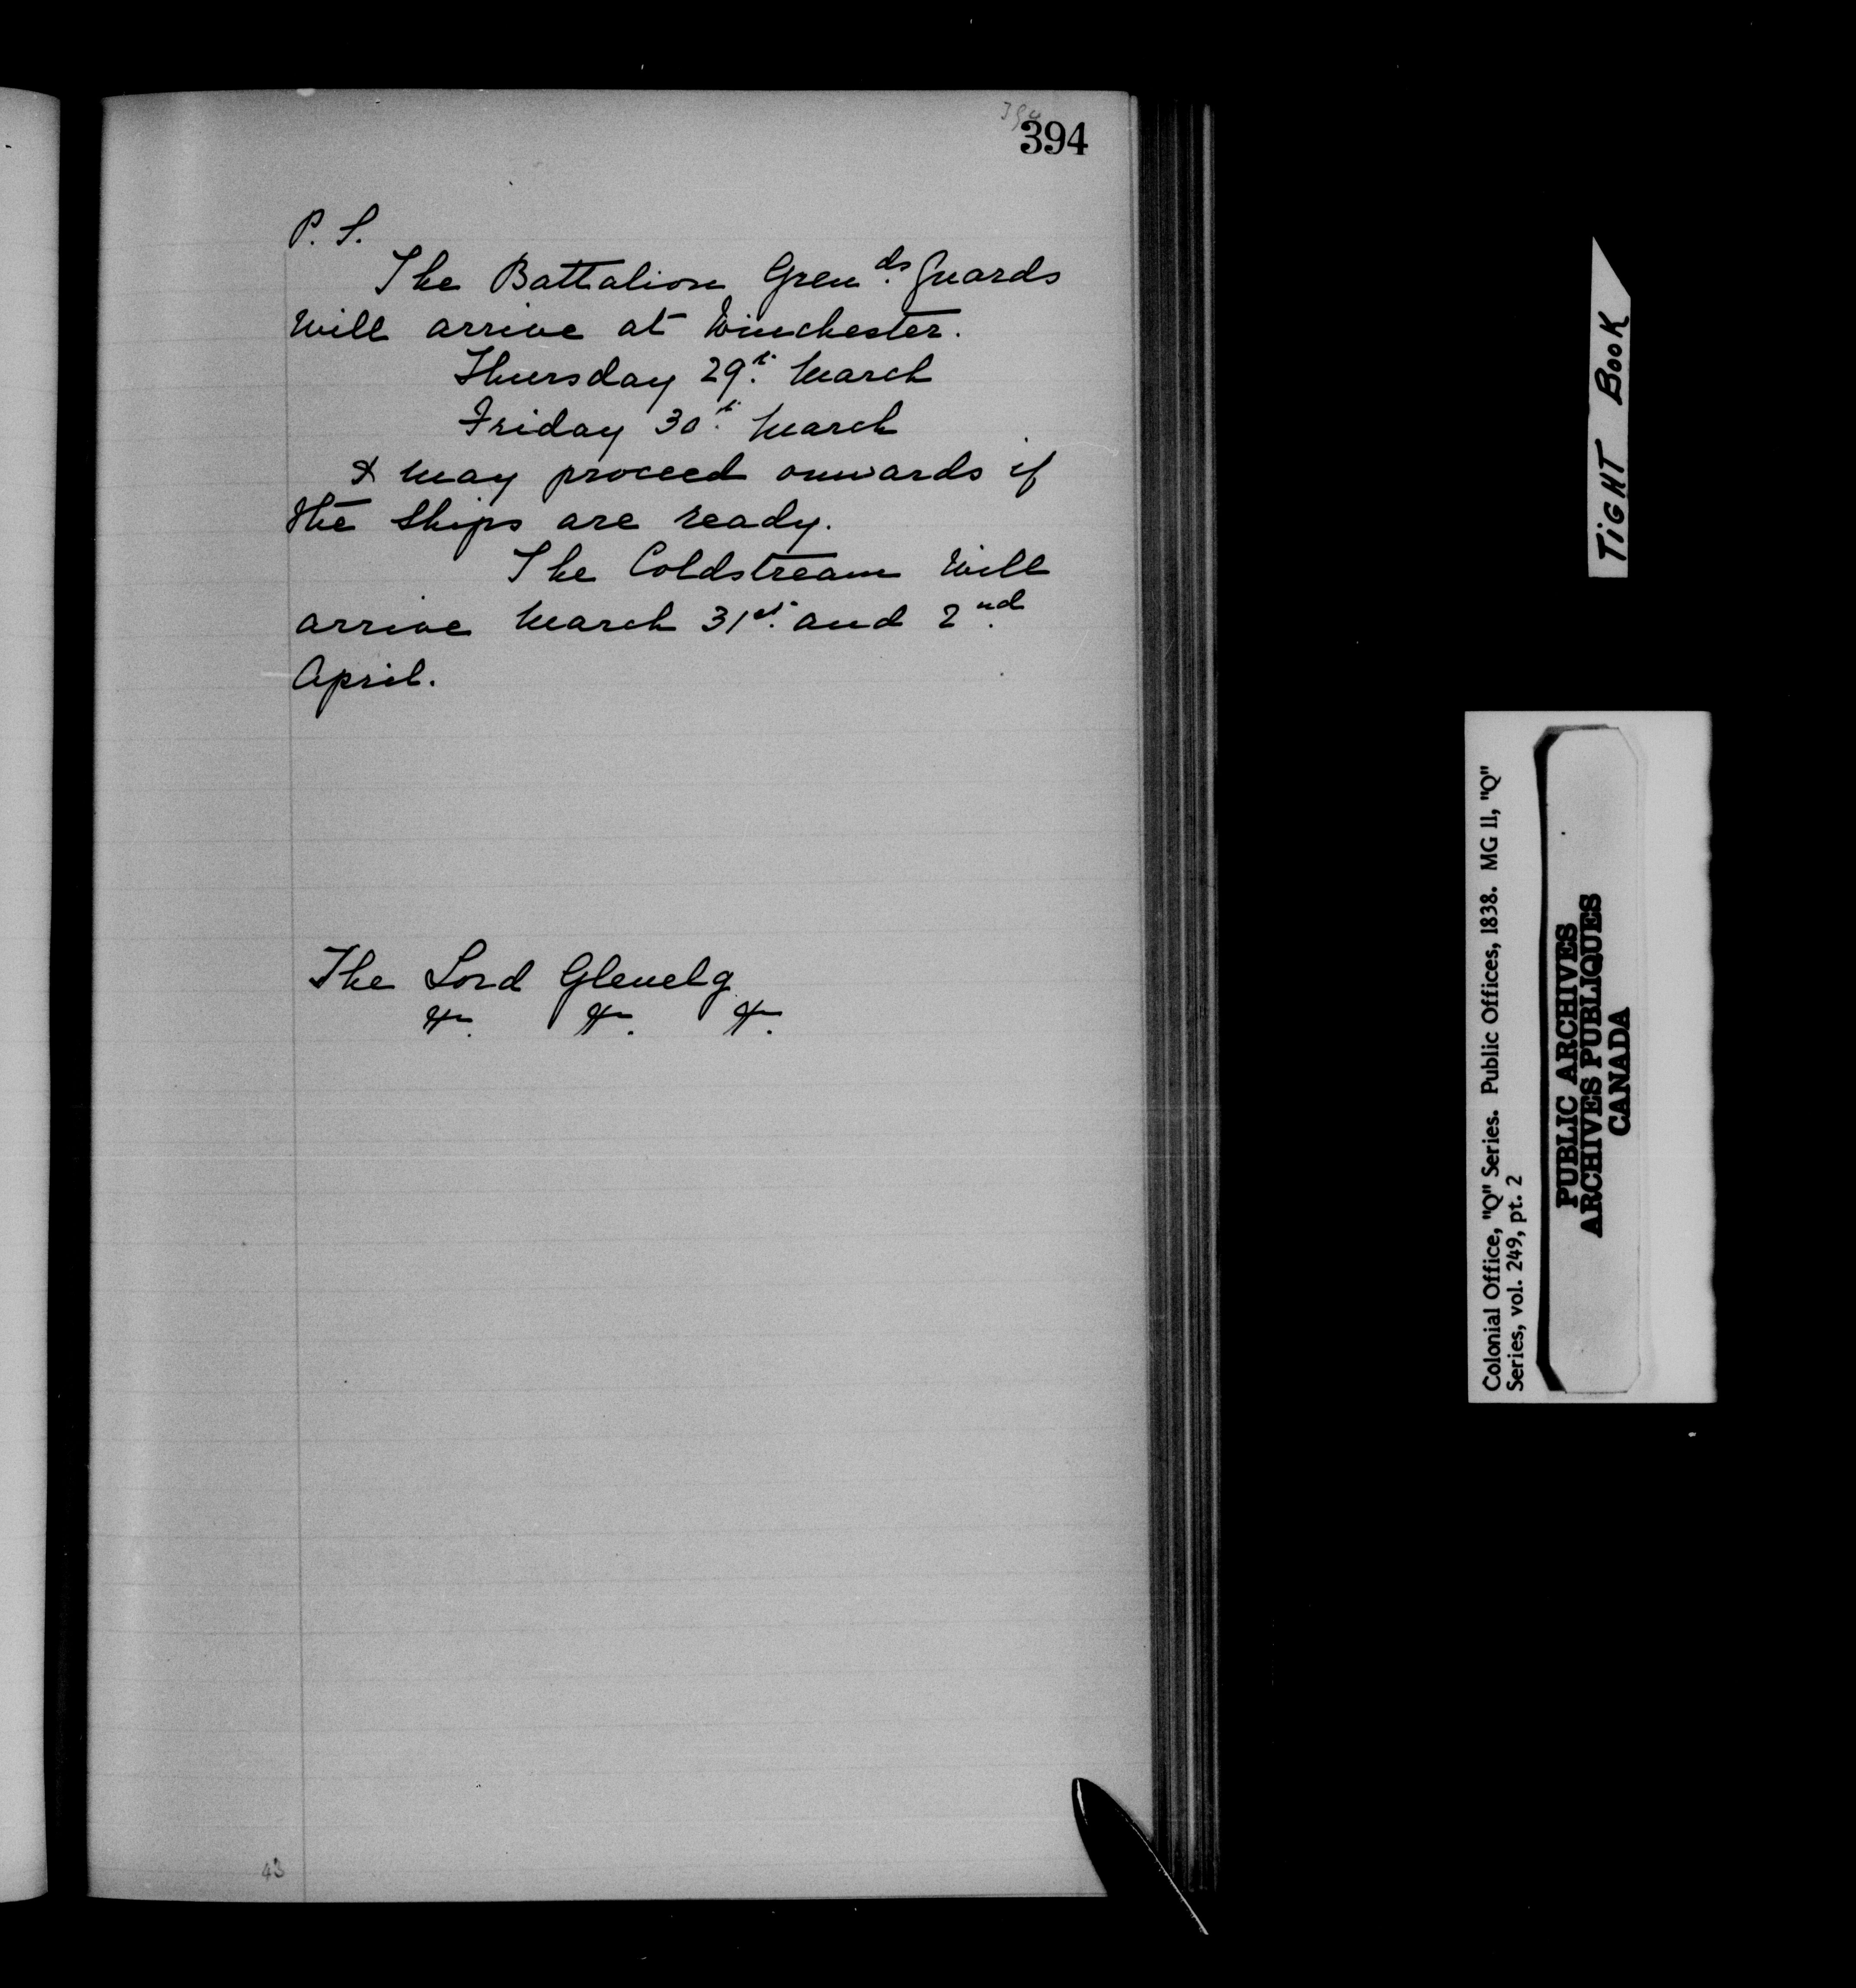 394
P. S.
The Battalion Gren.ds Guards
will arrive at Winchester.
Thursday 29.th March
Friday 30.th March
& may proceed onwards if
the ships are ready.
The Coldstream will
arrive March 31st. and 2.nd
April.
The Lord Glenelg
&c. &c. &c.
43
TiGHT BOOK
Colonial Office, "Q" Series. Public Offices, 1838. MG 11, "Q"
Series, vol. 249, pt. 2
PUBLIC ARCHIVES
ARCHIVES PUBLIQUES
CANADA